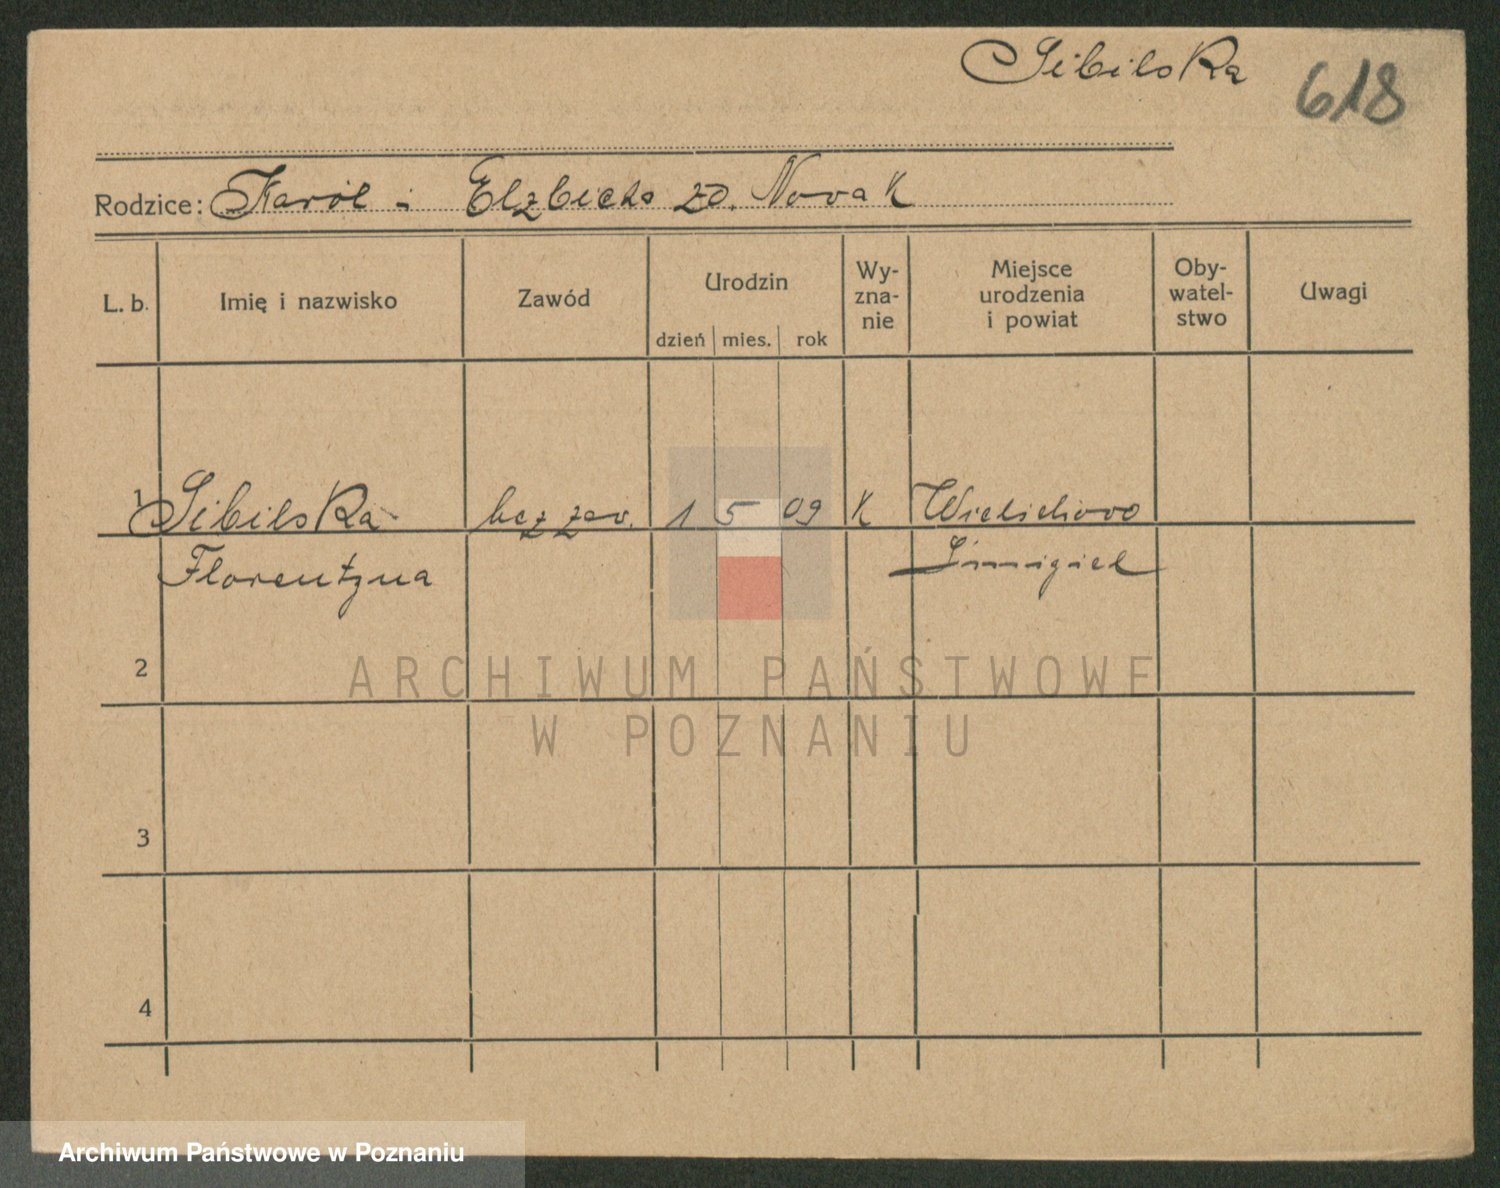 Sibilska 618
Rodzice: Karol i Elzbieta zd. Novak
L. b. Imię i nazwisko Zawód Urodzin dzień mies. rok Wy- zna- nie Miejsce urodzenia i powiat Oby- watel- stwo Uwagi
1 Sibilska bez zav. 1 5 09 K Wielichovo
Florentyna Śmigiel
2
ARCHIWUM PAŃSTWOWE
W POZNANIU
3
4
Archiwum Państwowe w Poznaniu